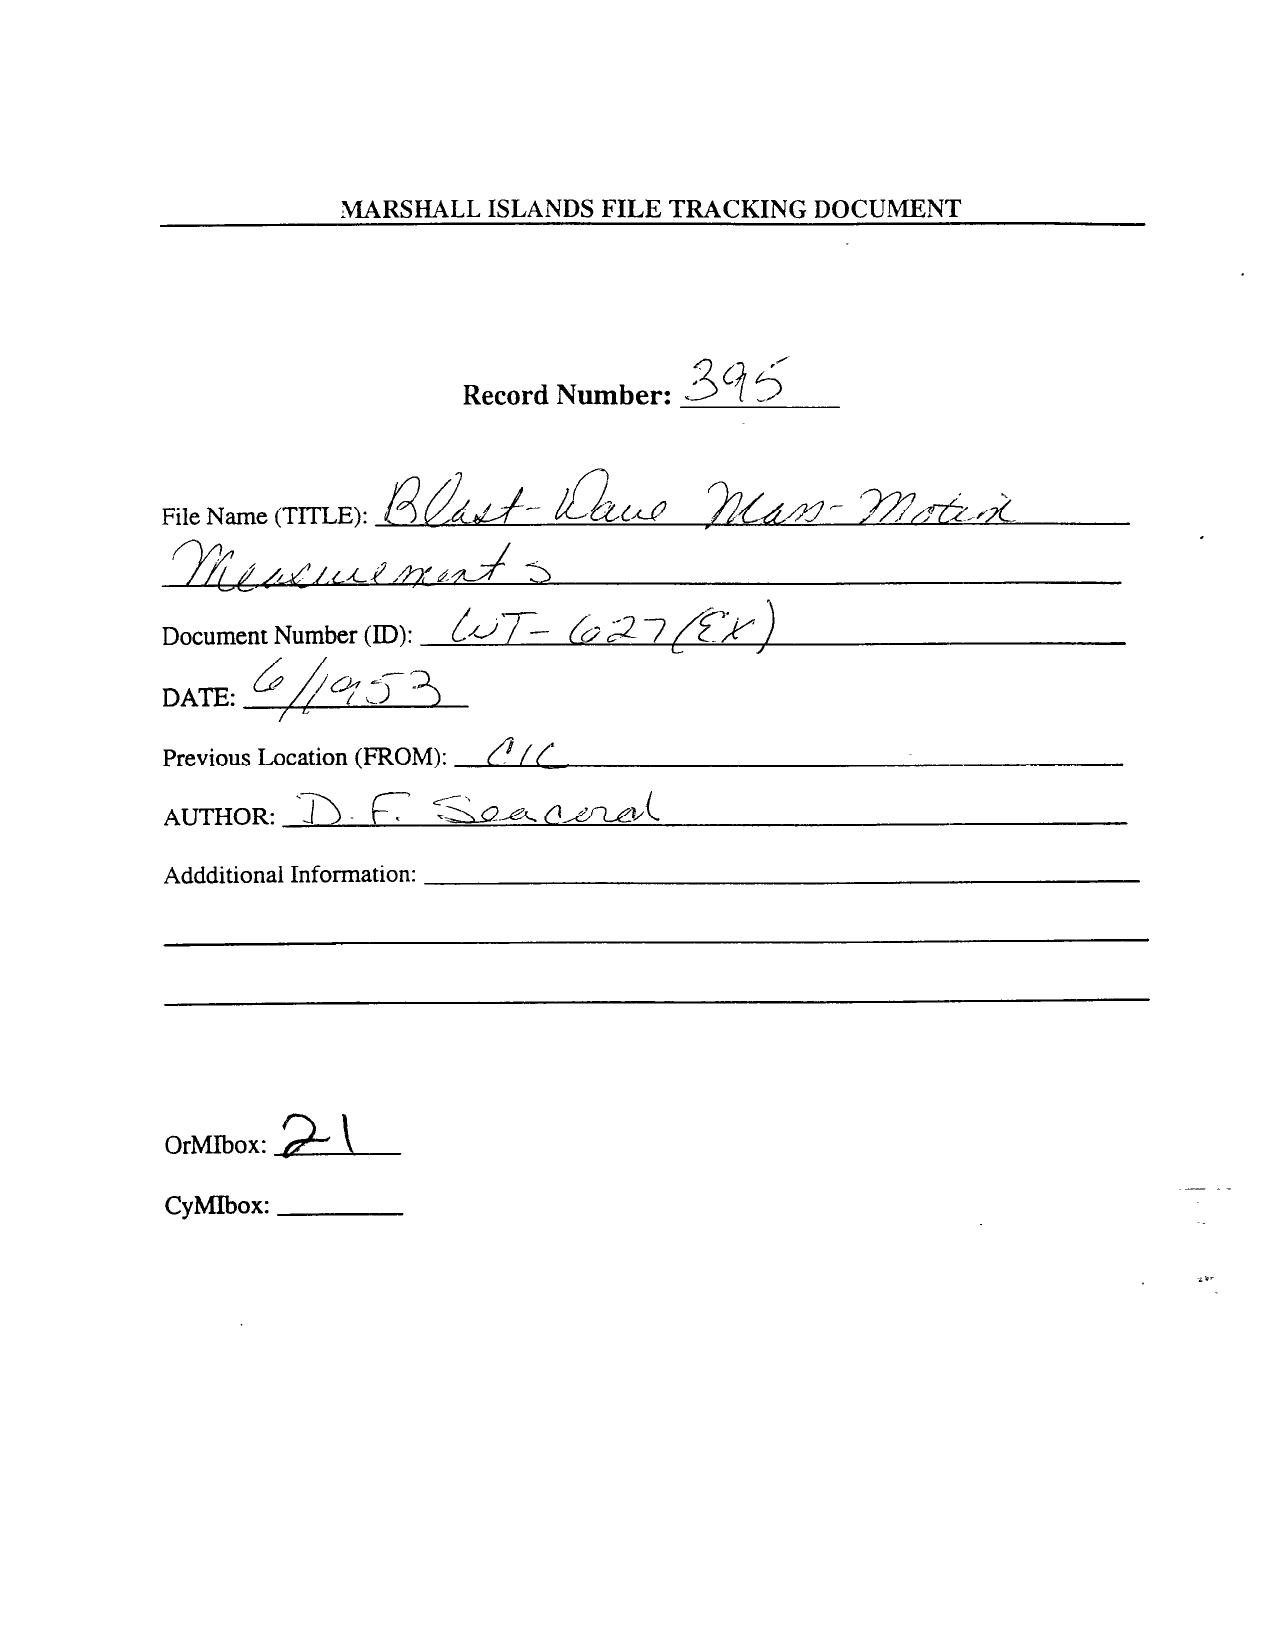 MARSHALL ISLANDS FILE TRACKING DOCUMENT
Record Number: 395
File Name (TITLE): Blast-Wave Mass-Motion
Measurements
Document Number (ID): WT-627(EX)
DATE: 6/1953
Previous Location (FROM): CIC
AUTHOR: D. F. Seacord
Addditional Information:
OrMIbox: 21
CyMIbox: